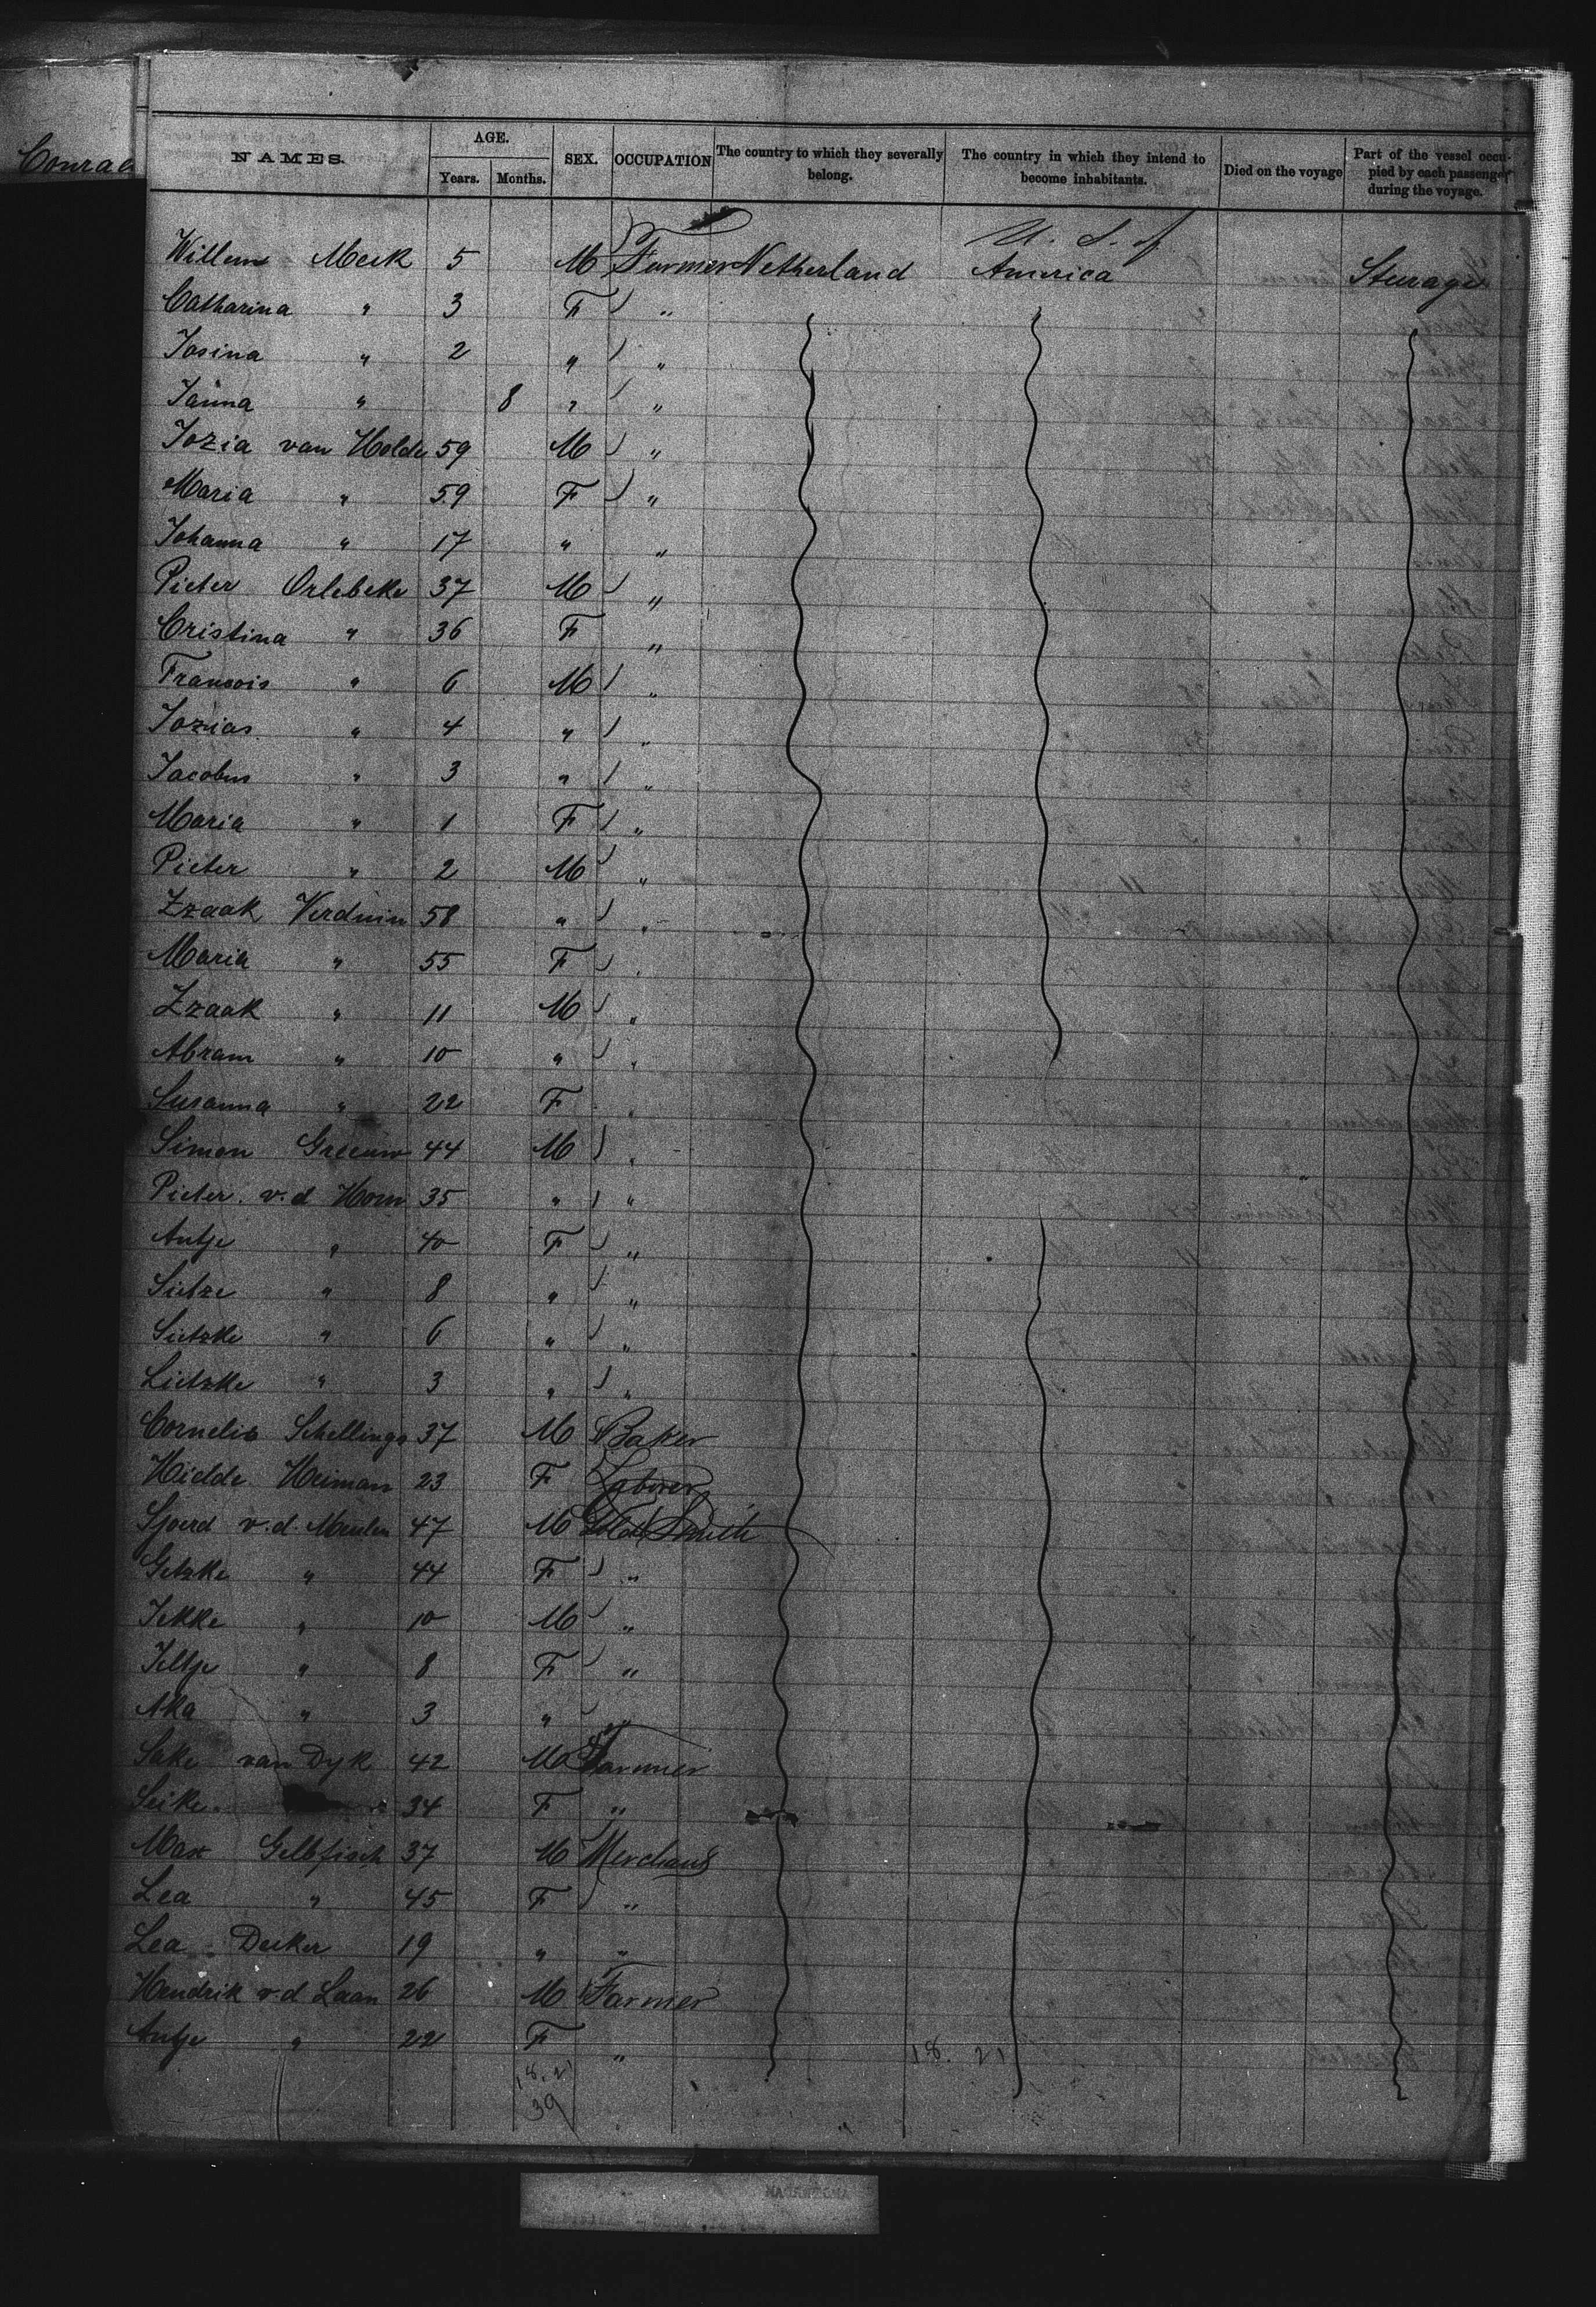 Conrad
NAMES. AGE. Years. Months. SEX. OCCUPATION The country to which they severally belong. The country in which they intend to become inhabitants. Died on the voyage Part of the vessel occupied by each passenger during the voyage.
U. S. of
Willem Meek 5 M Farmer Netherland America Steerage
Catharina " 3 F "
Josina " 2 " "
Janna " 8 " "
Jozia van Holde 59 M "
Maria " 59 F "
Johanna " 17 " "
Pieter Orlebeke 37 M "
Cristina " 36 F "
Francois " 6 M "
Jozias " 4 " "
Jacobus " 3 " "
Maria " 1 F "
Pieter " 2 M "
Izaak Verduin 58 " "
Maria " 55 F "
Izaak " 11 M "
Abram " 10 " "
Susanna " 22 F "
Simon Greeuw 44 M "
Pieter v.d Horn 35 " "
Antje " 40 F "
Sietze " 8 " "
Sietzke " 6 " "
Lietzke " 3 " "
Cornelis Schellinga 37 M Baker
Hielde Heiman 23 F Laborer
Sjoerd v.d. Meulen 47 M Gold Smith
Getzke " 44 F "
Jekke " 10 M "
Jeltje " 8 F "
Aka " 3 " "
Sake van Dyk 42 M Farmer
Seike " 34 F "
Max Gelbfisch 37 M Merchant
Lea " 45 F "
Lea Decker 19 " "
Hendrik v.d Laan 26 M Farmer
Antje " 22 F "
18. 21 18. 21
39